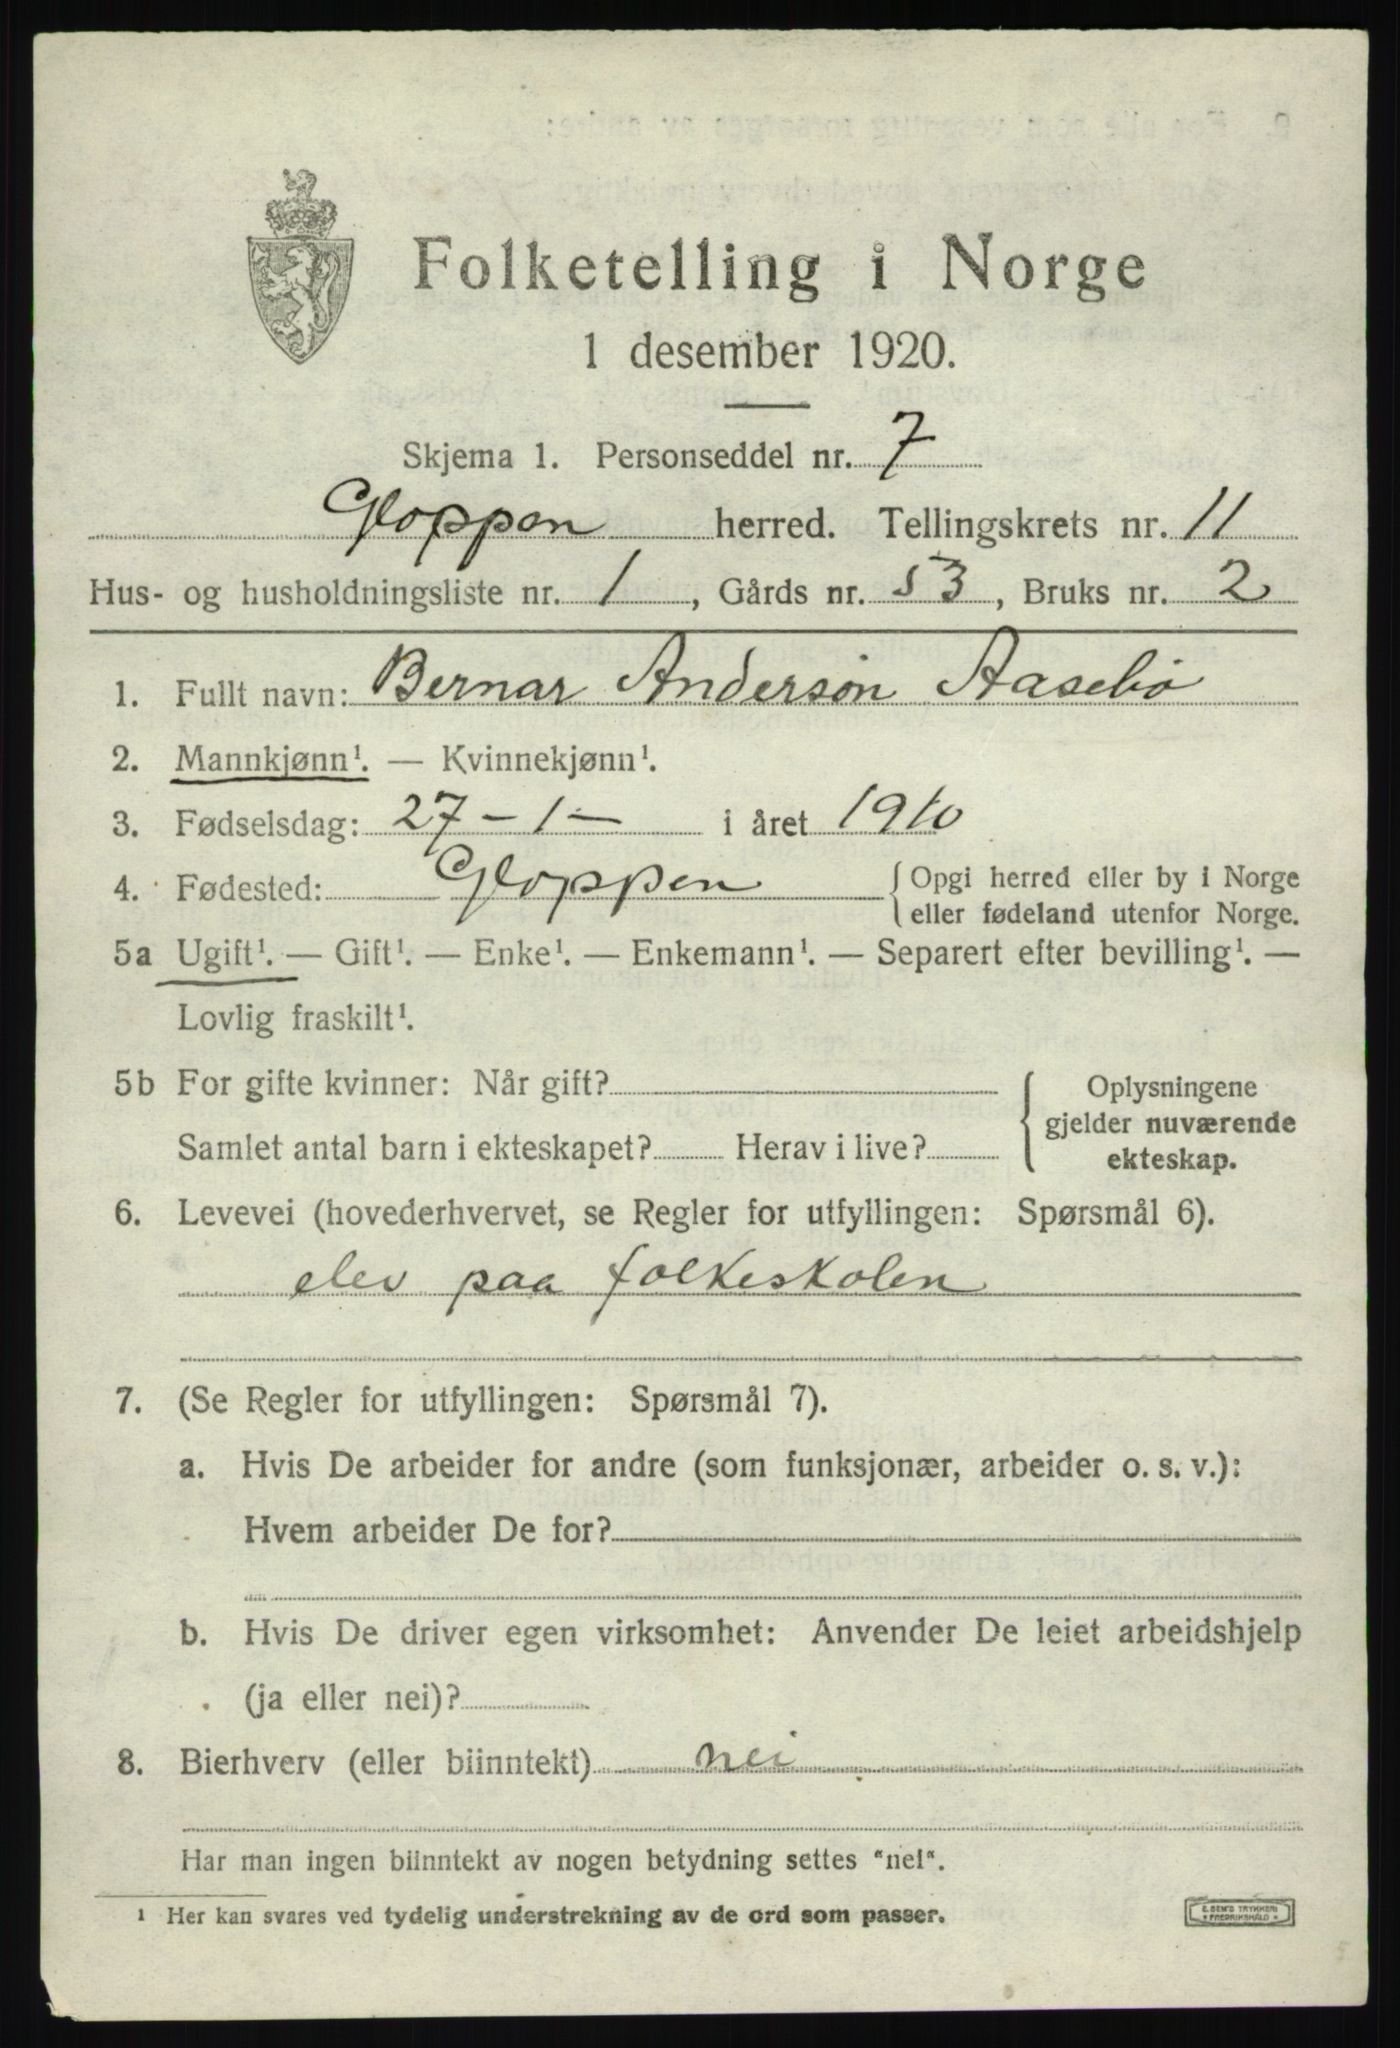 Folketelling i Norge
1 desember 1920.
Skjema 1. Personseddel nr. 7
Gloppen herred. Tellingskrets nr. 11
Hus- og husholdningsliste nr. 1, Gårds nr. 53, Bruks nr. 2
1. Fullt navn: Bernar Anderson Aasebø
2. Mannkjønn¹. — Kvinnekjønn¹.
3. Fødselsdag: 27-1- i året 1910
4. Fødested: Gloppen { Opgi herred eller by i Norge
eller fødeland utenfor Norge.
5a Ugift¹. — Gift¹. — Enke¹. — Enkemann¹. — Separert efter bevilling¹. —
Lovlig fraskilt¹.
5b For gifte kvinner: Når gift? { Oplysningene
gjelder nuværende
Samlet antal barn i ekteskapet? Herav i live?
ekteskap.
6. Levevei (hovederhvervet, se Regler for utfyllingen: Spørsmål 6).
elev paa folkeskolen
7. (Se Regler for utfyllingen: Spørsmål 7).
a. Hvis De arbeider for andre (som funksjonær, arbeider o. s. v.):
Hvem arbeider De for?
b. Hvis De driver egen virksomhet: Anvender De leiet arbeidshjelp
(ja eller nei)?
8. Bierhverv (eller biinntekt) nei
Har man ingen biinntekt av nogen betydning settes "nei".
¹ Her kan svares ved tydelig understrekning av de ord som passer.
E. SEM'S TRYKKERI
FREDRIKSHALD